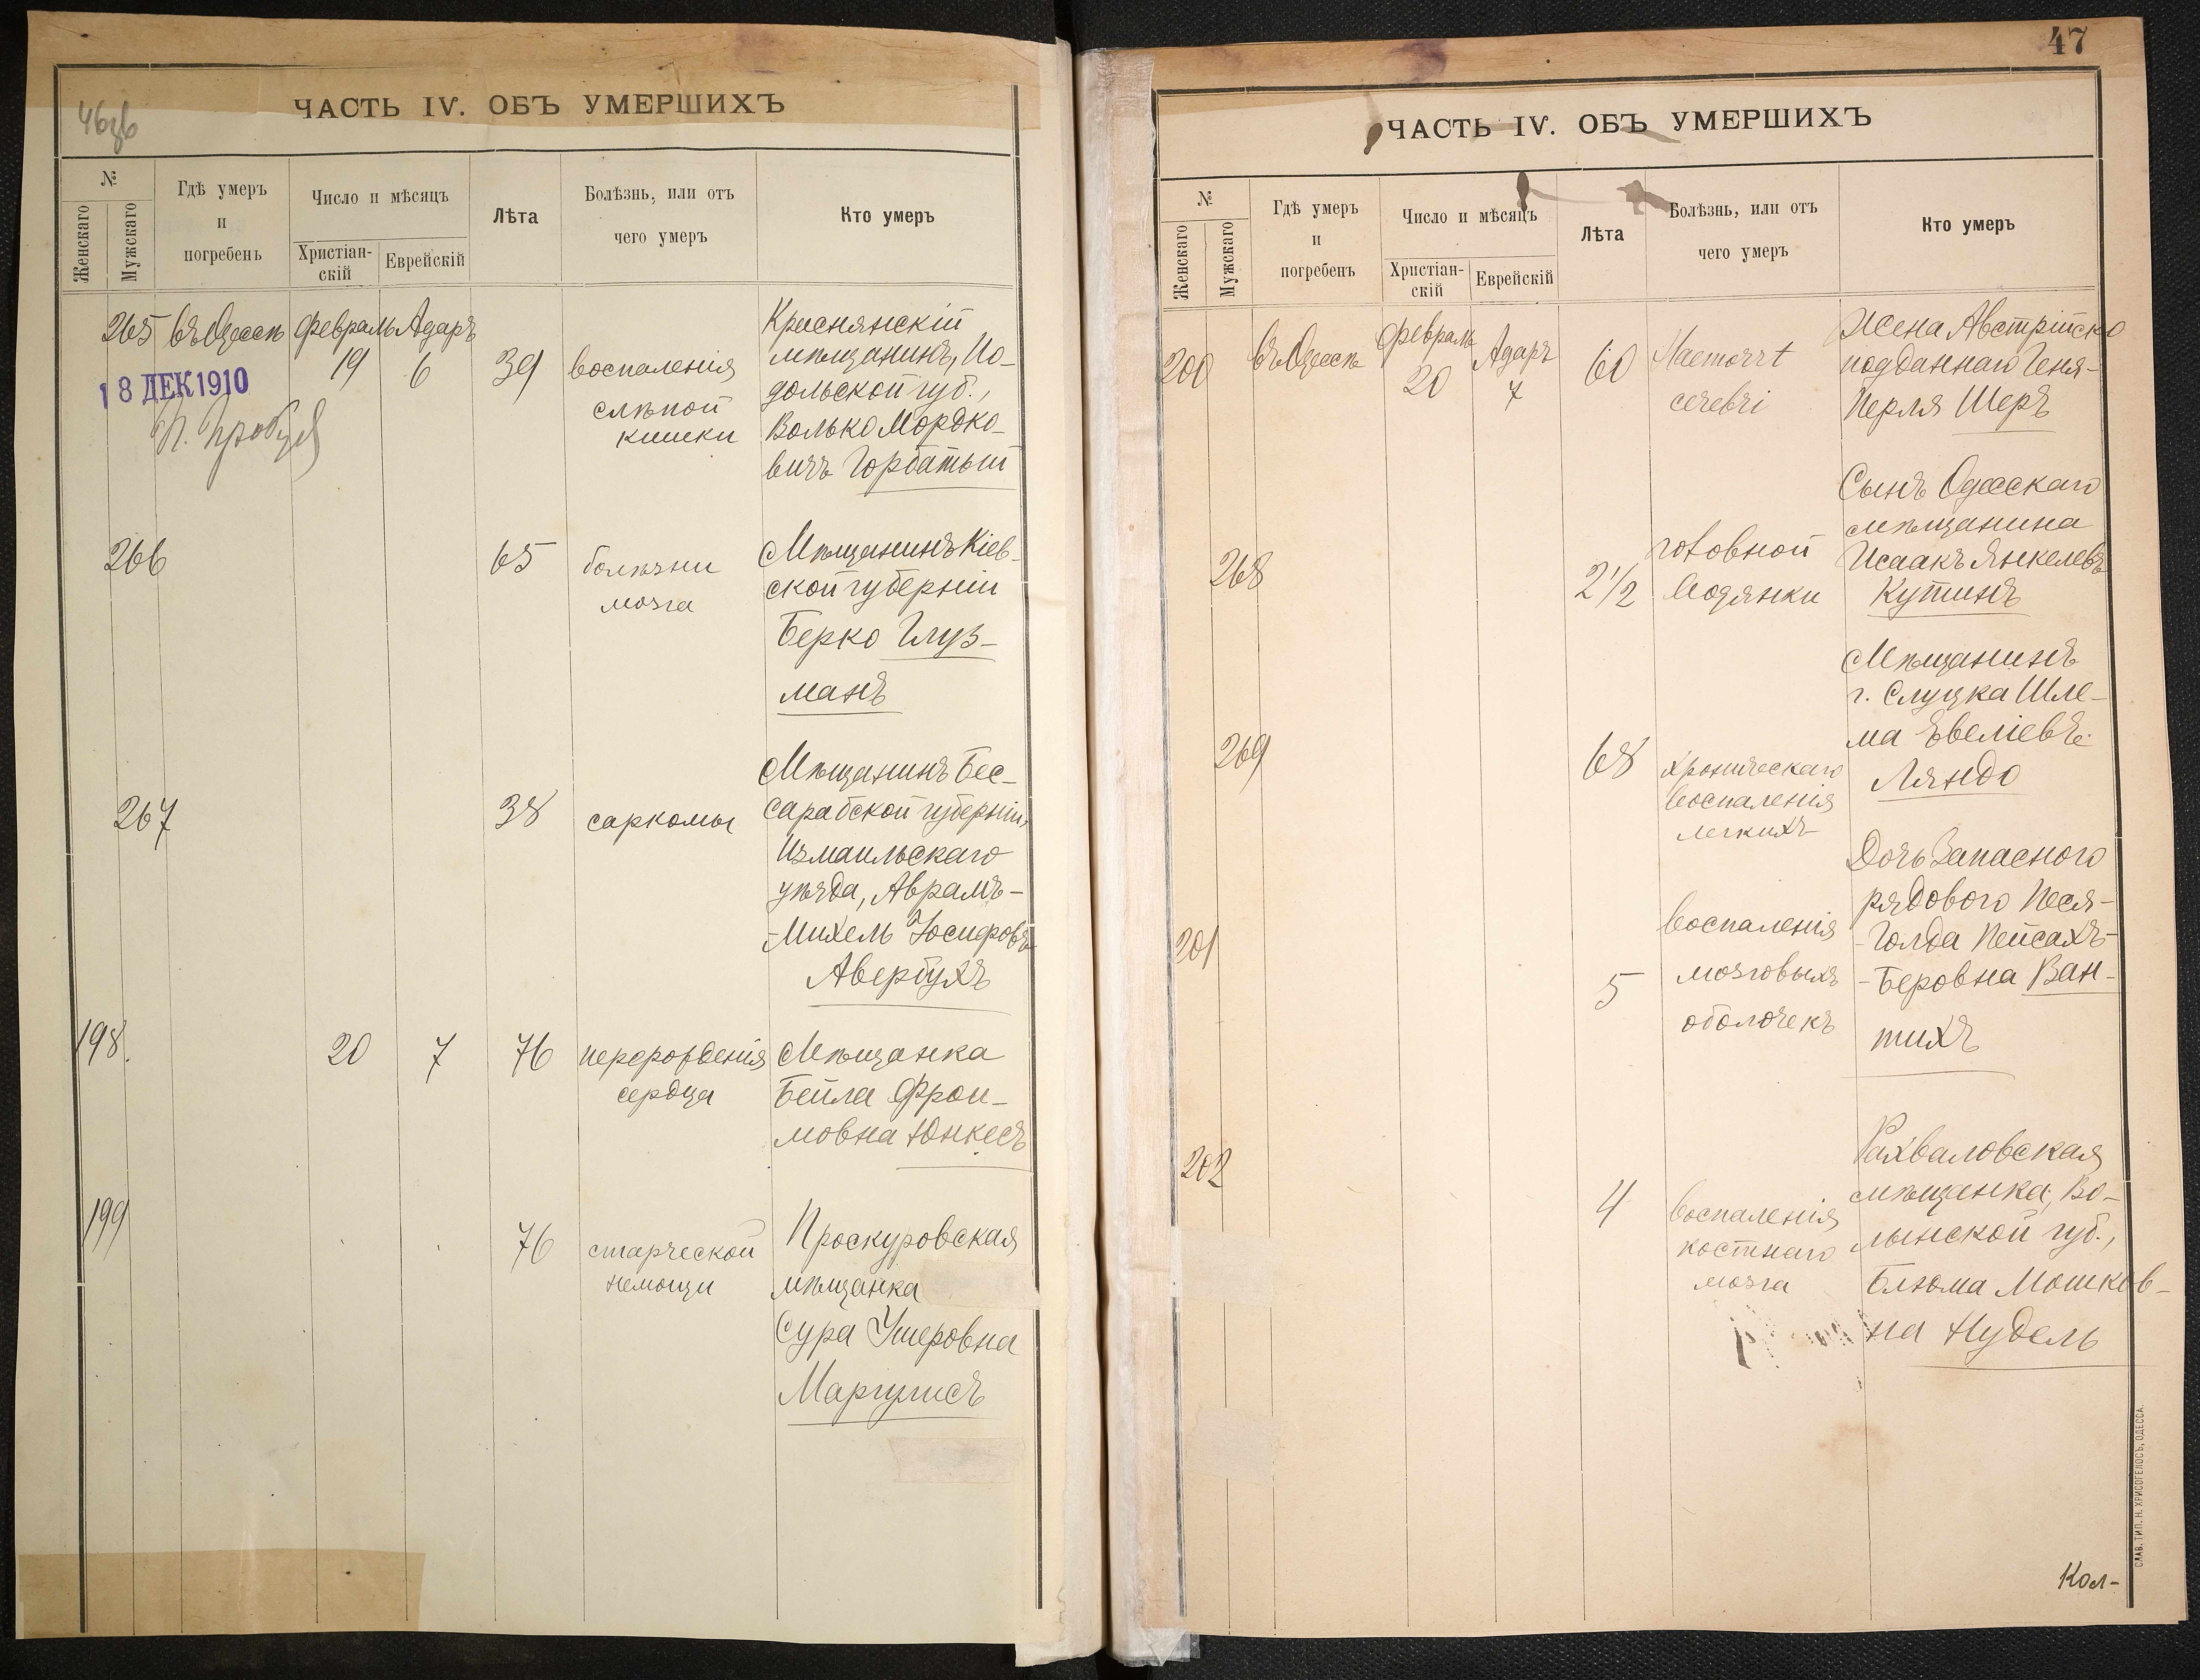 46 зв
ЧАСТЬ IV. ОБЪ УМЕРШИХЪ
№
Женскаго
Мужскаго
Гдѣ умеръ
и
погребенъ
Число и мѣсяцъ
Христіан-
скій
Еврейскій
Лѣта
Болѣзнь, или отъ
чего умеръ
Кто умеръ
265 въ Одессѣ Февраль Адаръ
19 6 39
18 ДЕК 1910
воспаленія
слѣпой
кишки
Краснянскій
мѣщанинъ, По-
дольской губ.,
Волько Мордко-
вичъ Горбатый
266 65
болѣзни
мозга
Мѣщанинъ Кіев-
ской губерніи
Берко Глуз-
манъ
267 38 саркомы
Мѣщанинъ Бес-
сарабской губерніи,
Измаильскаго
уѣзда, Аврамъ-
-Михель Іосифовъ
Авербухъ
198. 20 7 76
перерожденія
сердца
Мѣщанка
Бейла Фрои-
мовна Юнкесъ
199 76
старческой
немощи
Проскуровская
мѣщанка
Сура Ушеровна
Маргулисъ
47
ЧАСТЬ IV. ОБЪ УМЕРШИХЪ
№
Женскаго
Мужскаго
Гдѣ умеръ
и
погребенъ
Число и мѣсяцъ
Христіан-
скій
Еврейскій
Лѣта
Болѣзнь, или отъ
чего умеръ
Кто умеръ
200 въ Одессѣ Февраль Адаръ
20 7 60
Haemorrt
cerebri
Жена Австрійско
подданнаго Геня-
Перля Шеръ
268 2 1/2
головной
водянки
Сынъ Одесскаго
мѣщанина
Исаакъ Янкелевъ
Кутинъ
269 68
хроническаго
воспаленія
легкихъ
Мѣщанинъ
г. Слуцка Шле-
ма Евеліевъ
Ляндо
201 5
воспаленія
мозговыхъ
оболочекъ
Дочь Запасного
рядового Песя-
-Голда Пейсахъ-
-Беровна Ван-
тихъ
202 4
воспаленія
костнаго
мозга
Рахваловская
мѣщанка, Во-
лынской губ.,
Блюма Мошков-
на Нудель
Кол-
СЛАВ. ТИП. Н. ХРИСОГЕЛОСЪ, ОДЕССА.